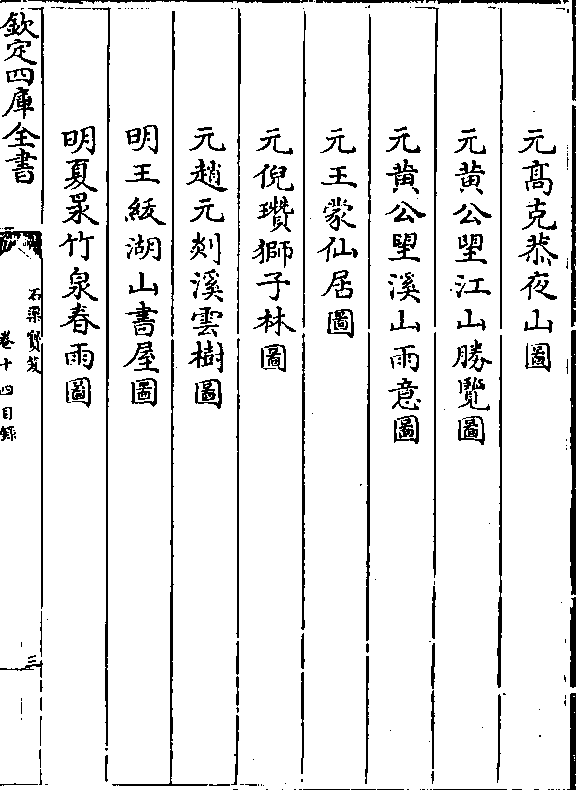 元髙克恭夜山圖
元黄公望江山勝覽圖
元黄公望溪山雨意圖
元王蒙仙居圖
元倪瓚獅子林圖
元趙元剡溪雲樹圖
明王紱湖山書屋圖
明夏㫤竹泉春雨圖
欽定四庫全書
石渠寶笈
卷十四目錄
三